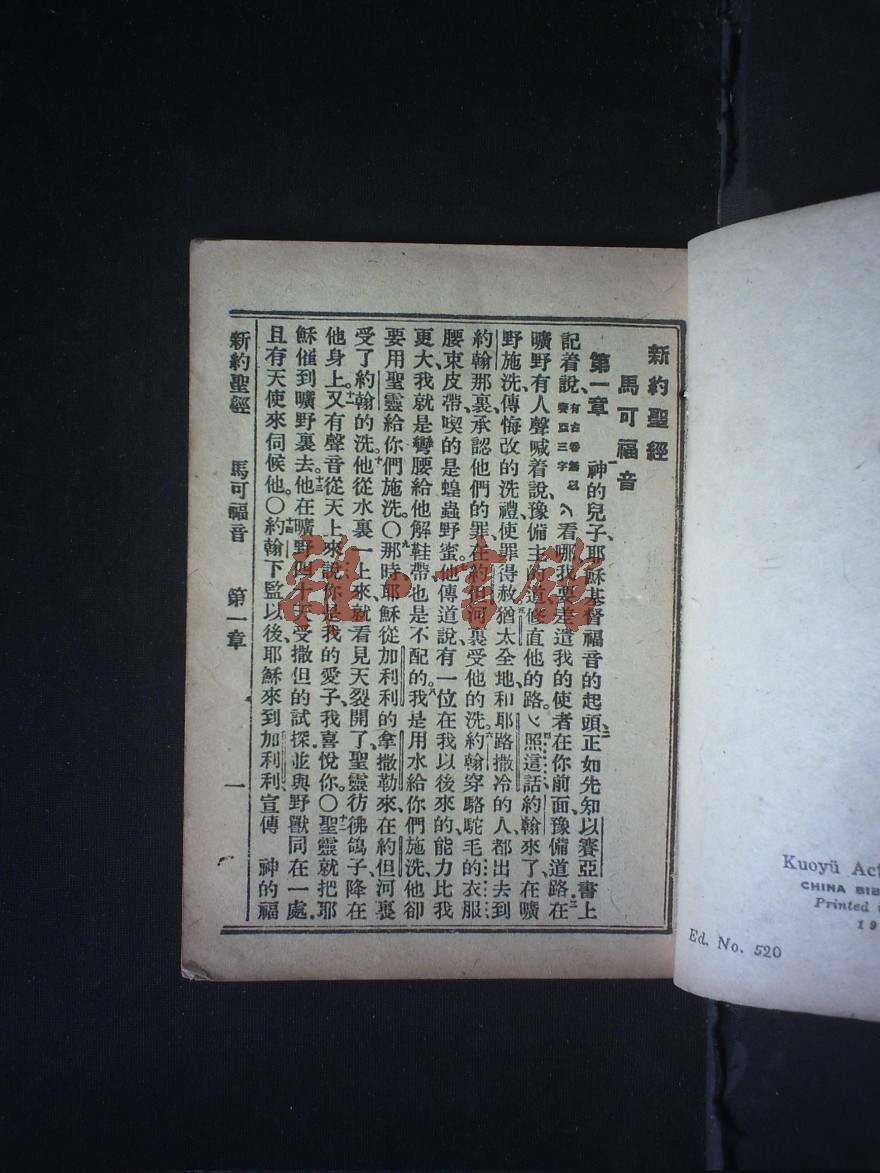 新約聖經
馬可福音
第一章 神的兒子、耶穌基督福音的起頭、正如先知以賽亞書上
記着說、有古卷無以賽亞三字 看哪我要差遣我的使者在你前面、豫備道路、在
曠野有人聲喊着說、豫備主的道、修直他的路。照這話、約翰來了、在曠
野施洗、傳悔改的洗禮、使罪得赦。猶太全地、和耶路撒冷的人、都出去到
約翰那裏、承認他們的罪、在約但河裏受他的洗。約翰穿駱駝毛的衣服、
腰束皮帶、喫的是蝗蟲野蜜。他傳道說、有一位在我以後來的、能力比我
更大、我就是彎腰給他解鞋帶、也是不配的。我是用水給你們施洗、他卻
要用聖靈給你們施洗。〇那時耶穌從加利利的拿撒勒來、在約但河裏
受了約翰的洗。他從水裏一上來、就看見天裂開了、聖靈彷彿鴿子、降在
他身上。又有聲音從天上來說、你是我的愛子、我喜悅你。〇聖靈就把耶
穌催到曠野裏去。他在曠野四十天受撒但的試探、並與野獸同在一處、
且有天使來伺候他。〇約翰下監以後、耶穌來到加利利、宣傳 神的福
新約聖經 馬可福音 第一章 一
Kuoyü Ac
CHINA BIB
Printed
19
Ed. No. 520